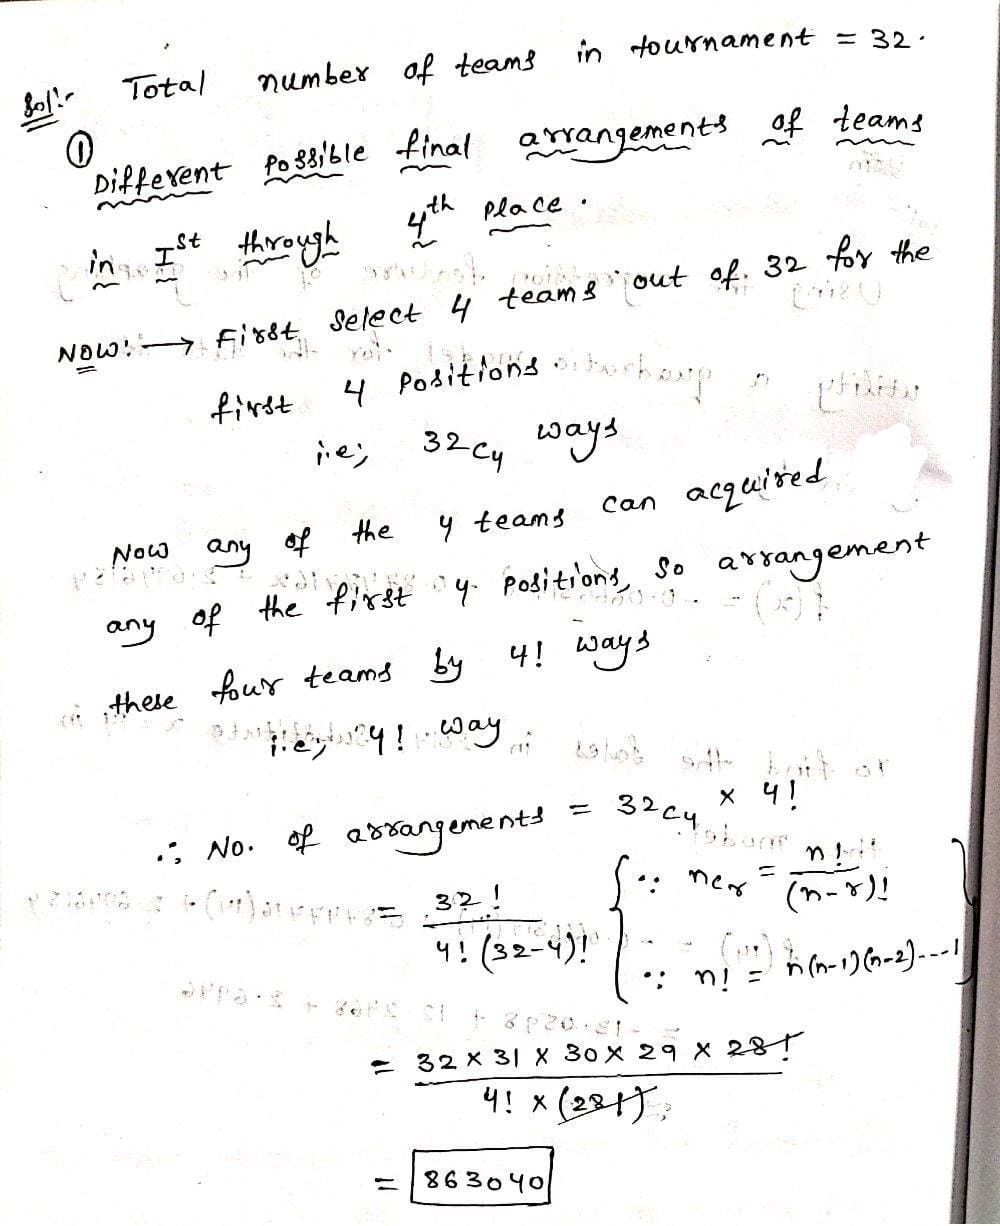 Sol:- Total number of teams in tournament = 32.
① Different Possible final arrangements of teams
in Ist through 4th place.
NOW: → First Select 4 teams out of 32 for the
first 4 Positions
i.e; 32C4 ways
Now any of the 4 teams can acquired
any of the first 4 Positions, So arrangement
these four teams by 4! ways
i.e; 4! way
∴ No. of arrangements = 32C4 × 4!
= 32! / 4! (32-4)! { ∵ ncr = n! / (n-r)!
∵ n! = n(n-1)(n-2)---1 }
= 32 × 31 × 30 × 29 × 28! / 4! × (28!)
= 863040